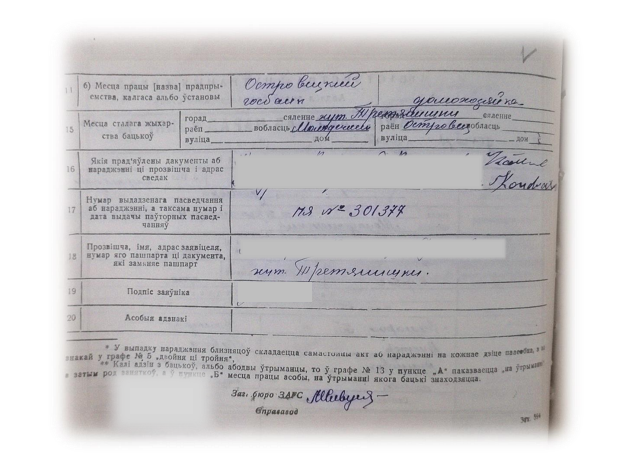 б) Месца працы [назва] прадпры-
емства, калгаса альбо ўстановы
Островецкий
госбанк
домохозяйка
15
Месца сталага жыхар-
ства бацькоў
горад сяленне хут. Третяишки сяленне
раён вобласць раён Островец вобласць
вуліца дом вуліца дом
16
Якія прад'яўлены дакументы аб
нараджэнні ці прозвішча і адрас
сведак
17
Нумар выдадзенага пасведчання
аб нараджэнні, а таксама нумар і
дата выдачы паўторных пасвед-
чанняў
№ 301377
18
Прозвішча, імя, адрас заявіцеля,
нумар яго пашпарта ці дакумента,
які замяняе пашпарт
хут. Третяишки.
19
Подпіс заяўніка
20
Асобыя адзнакі
* У выпадку нараджэння блізняцоў складаецца самастойны акт аб нараджэнні на кожнае дзіця
у графе № 5 „двойня ці тройня".
** Калі адзін з бацькоў, альбо абодва ўтрыманцы, то ў графе № 13 у пункце „А" паказваецца „на
затым род заняткаў, а ў пункце „Б" месца працы асобы, на ўтрыманні якога бацькі знаходзяцца.
Заг. бюро ЗАГС
Справавод